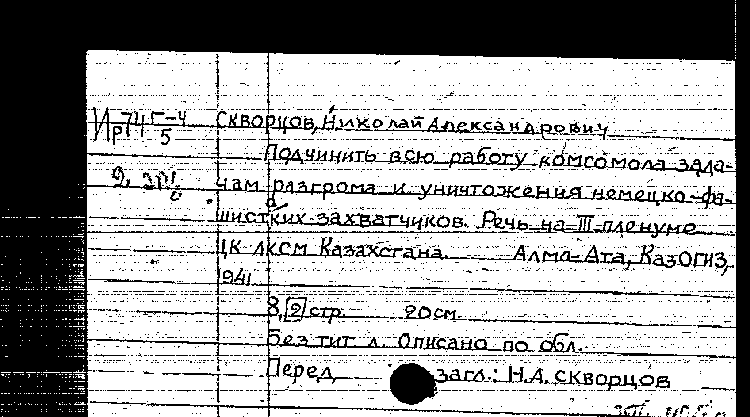 Ир74Г-4 Скворцов, Николай Александрович
5
Подчинить всю работу комсомола зада-
чам разгрома и уничтожения немецко-фа-
шистких захватчиков. Речь на III пленуме
ЦК ЛКСМ Казахстана. Алма-Ата, КазОГИЗ,
1941
8, [2] стр. 20 см
Без тит л. Описано по обл.
Перед загл.: Н.А. Скворцов